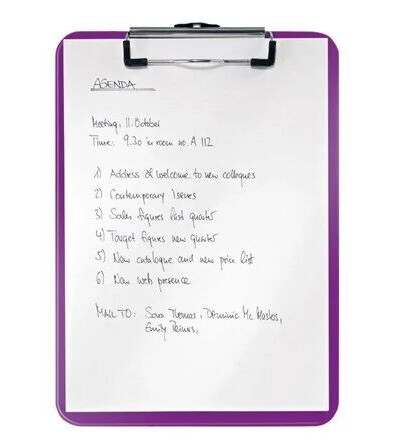 AGENDA
Meeting, 11. October
Time: 9.30 in room no. A 112
1) Address of welcome to new colleques
2) Contemporary Issues
3) Sales figures last quarter
4) Target figures new quarter
5) New catalogue and new price list
6) New web presence
MAIL TO: Sara Thomas, Dominic Mc.
Emily